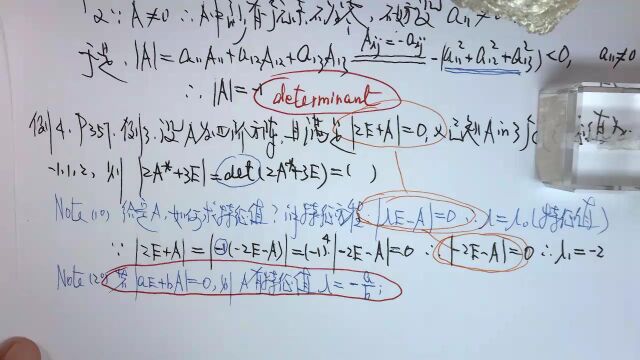 ∵ A≠0 ∴ A中
于是, |A| = a₁₁A₁₁ + a₁₂A₁₂ + a₁₃A₁₃ Aᵢⱼ = -aᵢⱼ -(a₁₁² + a₁₂² + a₁₃²) < 0, a₁₁≠0
∴ |A| = -1 determinant
例14. P357. 例3. 设A为四阶方阵, 且满足 |2E+A|=0, 又已知A的3个
-1, 1, 2, 则 |2A*+3E| = det(2A*+3E) = ( )
Note (1°) 给定A, 如何求特征值? 由特征方程: |λE-A|=0, λ=λ₀ (特征值)
∵ |2E+A| = |-(-2E-A)| = (-1)⁴ |-2E-A| = 0 ∴ |-2E-A| = 0 ∴ λ₁ = -2
Note (2°) 若 |aE+bA|=0, 则 A有特征值 λ = -a/b;